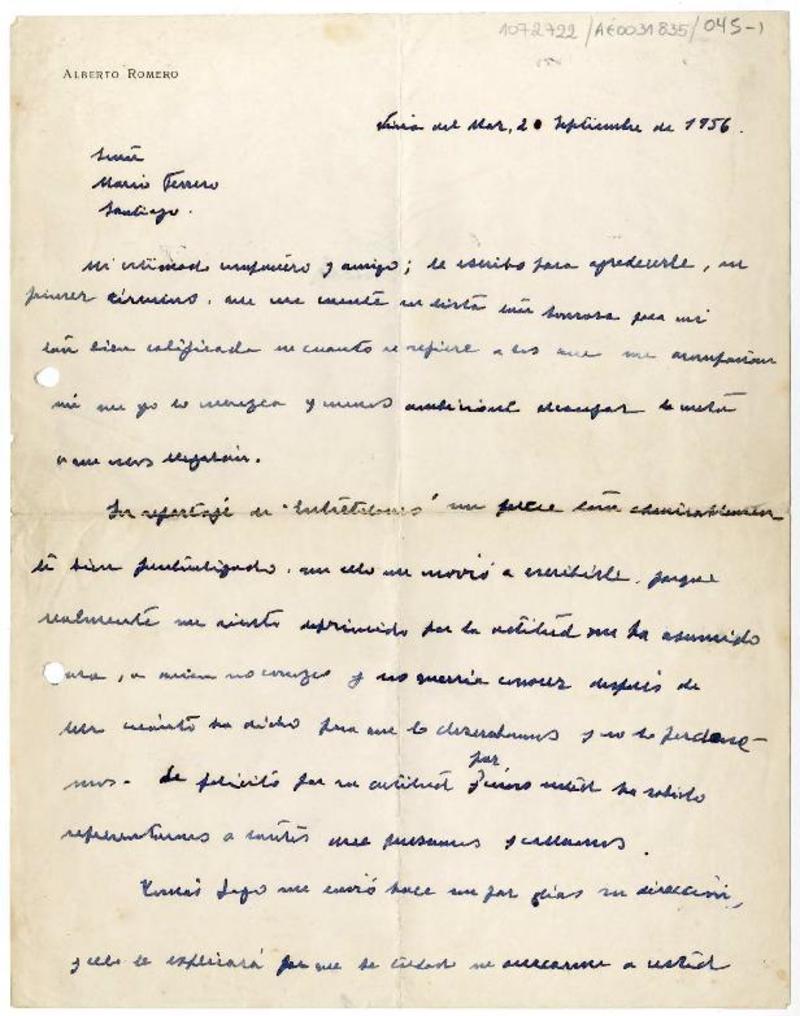 1072722 /AE0031835/045-1
ALBERTO ROMERO
Viña del Mar, 20 Septiembre de 1956.
Señor
Mario Ferrero
Santiago.
Mi estimado compañero y amigo; le escribo para agradecerle, en
primer término, que me cuente en lista tan honrosa para mi
tan bien calificada en cuanto se refiere a los que me acompañan
sin que yo lo merezca y menos ambicioné alcanzar la meta
a que nos
Su reportaje de "Entretelones" me parece tan admirablemen-
te bien puntualizado, que ello me movió a escribirle, porque
realmente me siento deprimido por la actitud que ha asumido
, a quien no conozco y no querría conocer después de
leer cuánto ha dicho para que lo y no lo perdone-
mos. Le felicito por su actitud y por cómo usted ha sabido
representarnos a tantos que pensamos y callamos.
Tomás Lago me envió hace un par días su dirección,
y ello le explicará por que he tardado en acercarme a usted